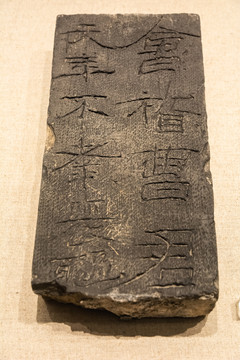 會稽曹君
天年不幸喪軀